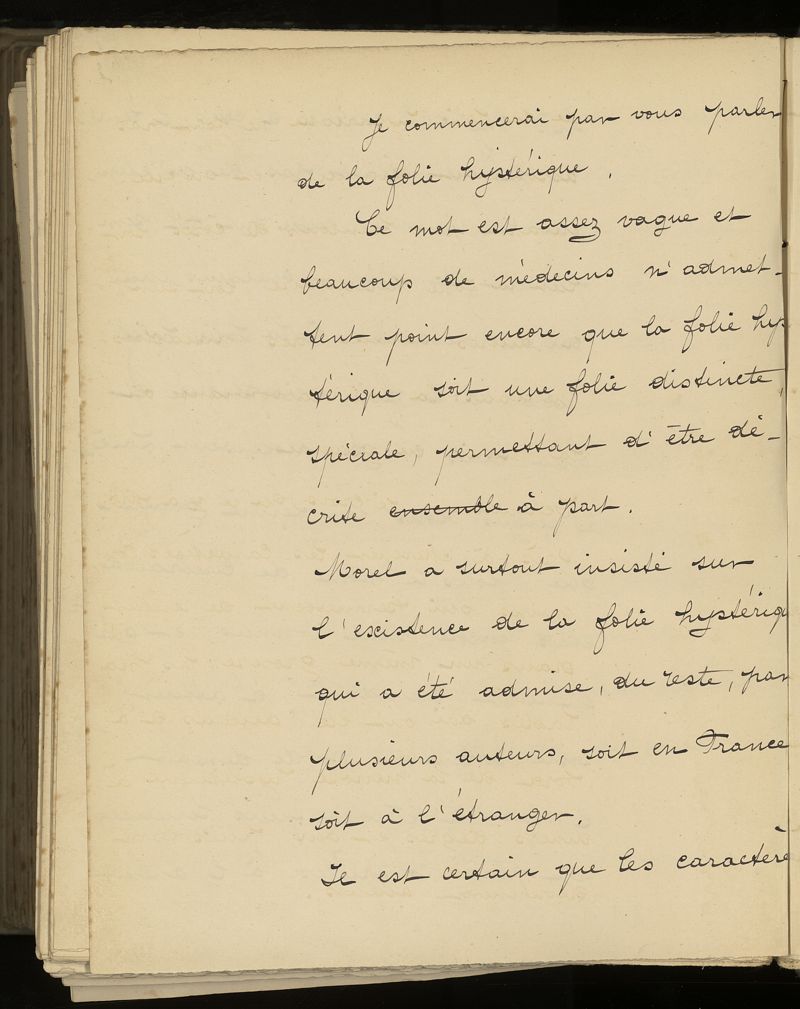 Je commencerai par vous parler
de la folie hystérique.
Ce mot est assez vague et
beaucoup de médecins n'admet-
tent point encore que la folie hys
térique soit une folie distincte,
spéciale, permettant d'être dé-
crite ensemble à part.
Morel a surtout insisté sur
l'existence de la folie hystériq
qui a été admise, du reste, par
plusieurs auteurs, soit en France
soit à l'étranger.
Il est certain que les caractère